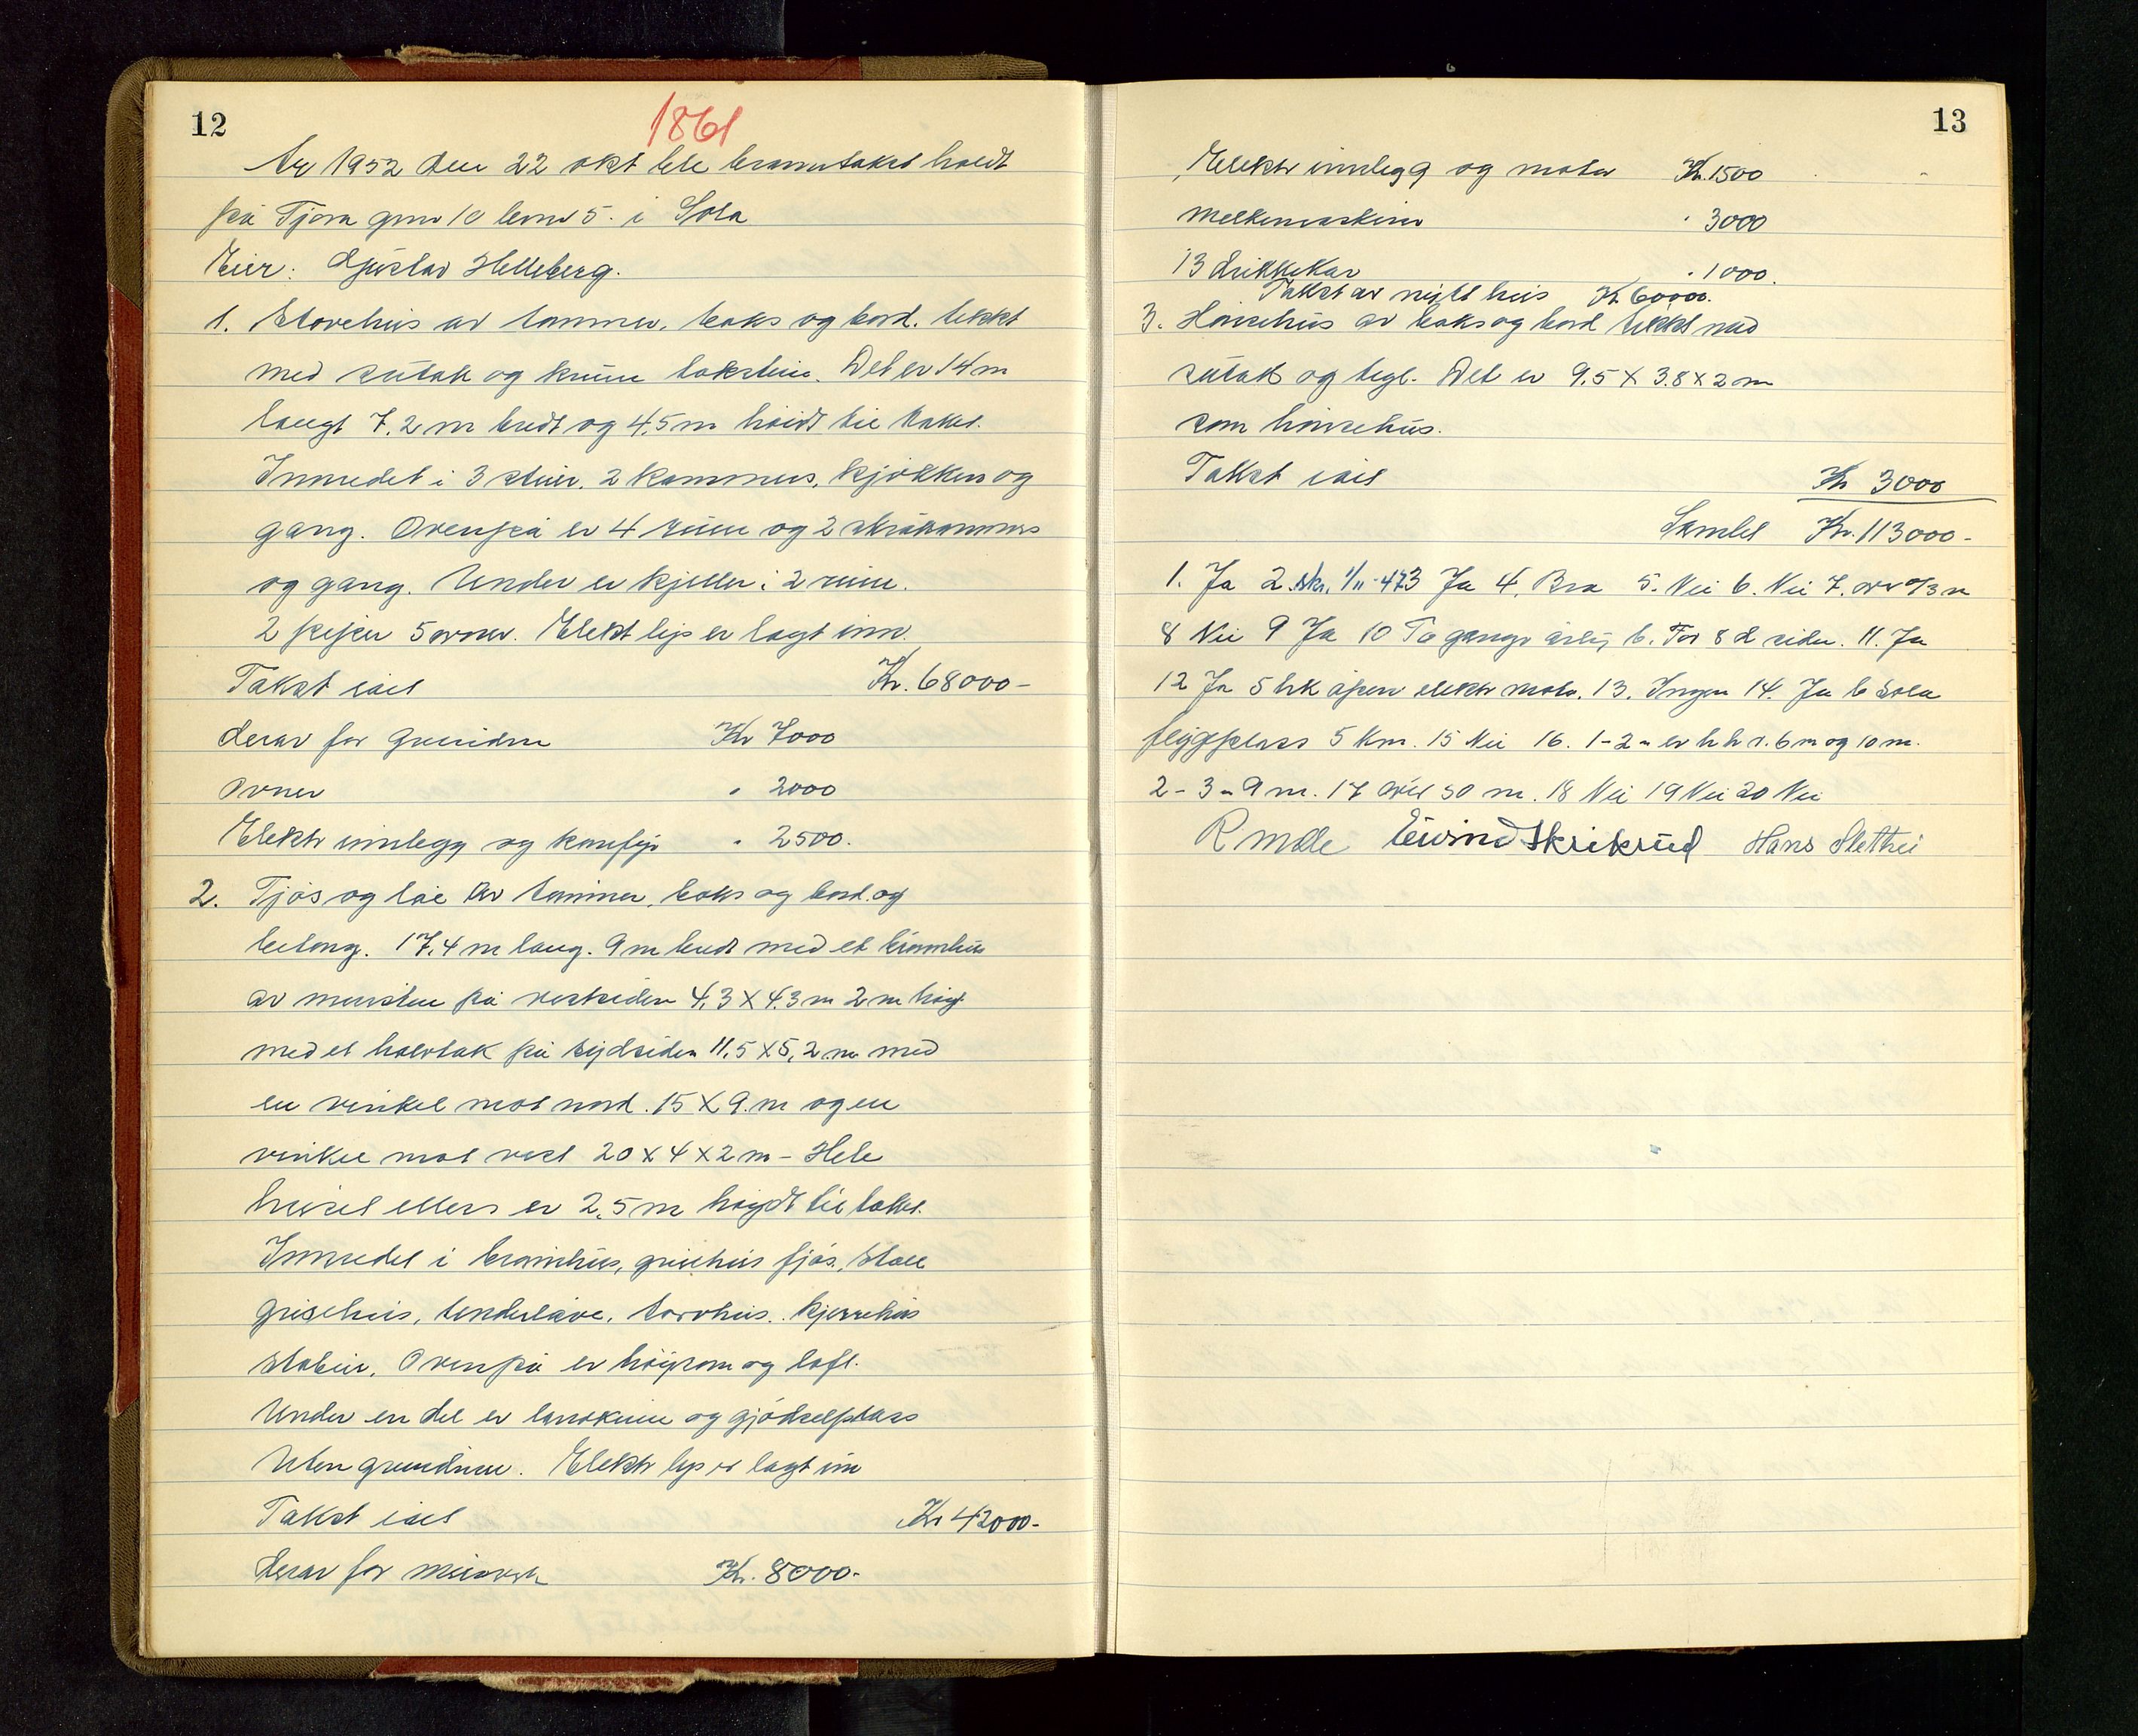 12
1861
År 1952 den 22 okt ble branntakst holdt
på Tjora gnr 10 bnr 5. i Sola
Eier: Gustav Helleberg.
1. Stovehus av tømmer, boks og bord. tekkt
med sutak og krum takstein. Det er 14 m
langt 7.2 m bredt og 4.5 m høidt til taket.
Innredet i 3 stuer, 2 kammers, kjøkken og
gang. Ovenpå er 4 rum og 2 skråkammers
og gang. Under er kjeller i 2 rum.
2 piper 5 ovner. Elekt lys er lagt inn.
Takst ialt Kr. 68000-
derav for Grunnmur Kr 7000
Ovner " 2000
Elektr innlegg og komfyr " 2500.
2. Fjøs og løe av tømmer, boks og bord. og
betong. 17.4 m lang. 9 m bredt med et brønnhus
av murstein på vestsiden 4,3 X 4.3 m 2 m høgt
med et halvtak på sydsiden 11,5 X 5,2 m med
en vinkel mot nord. 15 X 9. m og en
vinkel mot vest 20 x 4 x 2 m - Hele
huset ellers er 2.5 m høgdt til taket.
Innredet i brønnhus, grisehus fjøs, stall
grisehus, underløve, torvhus. kjerrehus
stabur. Ovenpå er høyrom og loft.
Under en del er landkum og gjødselplass
Uten grunnmur. Elektr lys er lagt inn
Takst ialt Kr 42000-
derav for murverk Kr. 8000-
13
Elektr innlegg og motor Kr. 1500
Melkemaskin " 3000
13 drikkekar " 1000.
Takst av nytt hus Kr 60000.
3. Hønsehus av boks og bord tekkt med
sutak og tegl. Det er 9.5 X 3.8 x 2 m
som hønsehus.
Takst ialt Kr 3000
Samlet Kr. 113000-
1. Ja 2. skr. 1/11-47 3 Ja 4. Bra 5. Nei 6. Nei 7. over 3 m
8 Nei 9 Ja 10 To ganger årlig b. For 8 d siden. 11. Ja
12 Ja 5 hk åpen elektr motor. 13. Ingen 14. Ja b Sola
flyplass 5 km. 15 Nei 16. 1-2 er h h v. 6 m og 10 m.
2 - 3 = 9 m. 17 over 50 m. 18 Nei 19 Nei 20 Nei
Eivind Skrikrud Hans Slettei